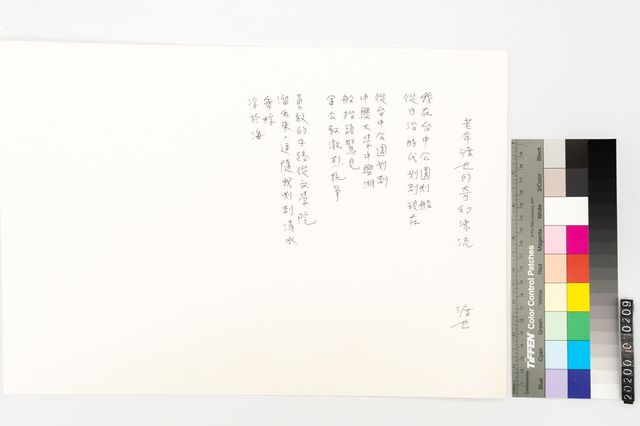 老年渡也的奇幻漂流
渡也
我在台中公園划船
從日治時代划到現在
從台中公園划到
中興大學中興湖
船抬頭驚見
軍公教激烈抗爭
勇敢的子路從文學院
溜出來，追隨我划到清水
乘桴
浮於海
TIFFEN Color Control Patches
Blue
Cyan
Green
Yellow
Red
Magenta
White
3/Color
Black
202000100209